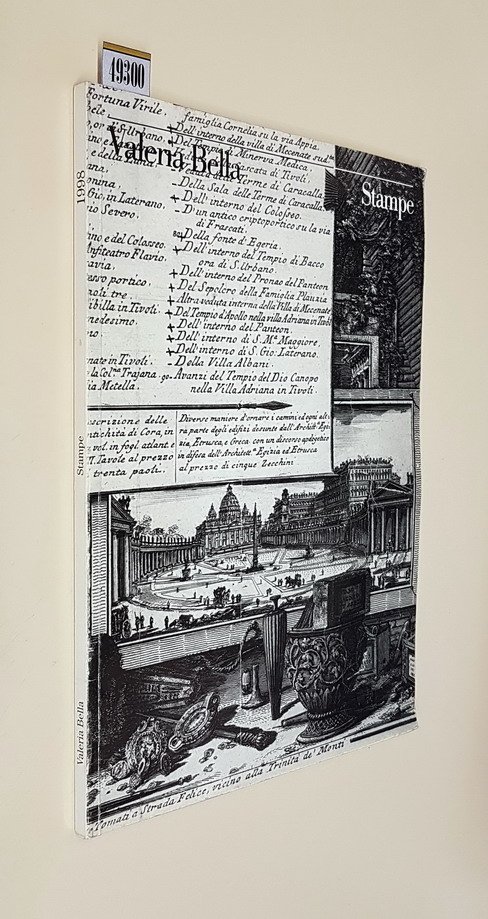 49300
Valeria Bella
Stampe
1998
Stampe
Valeria Bella
Fortuna Virile.
ana,
onina,
Gio, in Laterano,
io Severo,
ino e del Colosseo.
Anfiteatro Flavio.
avia,
esso portico,
noli tre
ibilla in Tivoli
nedesimo.
no,
nate in Tivoli.
la Col.na Trajana
ia Metella.
famiglia Cornelia su la via Appia.
Dell' interno della villa di Mecenate
Minerva Medica.
Terme di Caracalla
Della Sala delle Terme di Caracalla
Dell' interno del Colosseo.
D'un antico criptoportico su la via
di Frascati.
Della fonte d' Egeria.
Dell' interno del Tempio di Bacco
ora di S. Urbano.
Dell' interno del Pronao del Panteon
Del Sepolcro della Famiglia Plauzia
Altra veduta interna della Villa di Mecenate
Del Tempio d'Apollo nella villa Adriana in
Dell' interno del Panteon.
Dell' interno di S. M.a Maggiore,
Dell' interno di S. Gio: Laterano.
Della Villa Albani.
Avanzi del Tempio del Dio Canopo
nella Villa Adriana in Tivoli
scrizione delle
ntichità di Cora, in
vol. in fogl. atlant. e
Tavole al prezzo
trenta paoli.
Diverse maniere d'ornare i camini ed ogni al
ra parte degli edifizi desunte dall' Archit.a Egi
zia, Etrusca, e Greca con un discorso apologetico
in difesa dell' Architett.a Egizia ed Etrusca
al prezzo di cinque Zecchini
Tomati a Strada Felice, vicino alla Trinità de' Monti